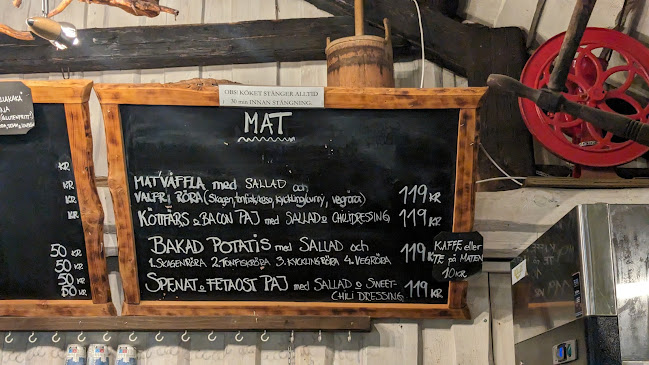 OBS! KÖKET STÄNGER ALLTID
30 min INNAN STÄNGNING.
MAT
MATVÅFFLA med SALLAD och
VALFRI RÖRA (Skagen, tonfisk, , kyckling, vegröra) 119 KR
KÖTTFÄRS & BACON PAJ med SALLAD & CHILIDRESSING 119 KR
BAKAD POTATIS med SALLAD och 119 KR
1. SKAGENRÖRA 2. TONFISKRÖRA 3. KYCKLINGRÖRA 4. VEGRÖRA
SPENAT & FETAOST PAJ med SALLAD & SWEET-
CHILI DRESSING 119 KR
KAFFE eller
TE på MATEN
10 KR
KR
KR
KR
KR
50 KR
50 KR
50 KR
50 KR